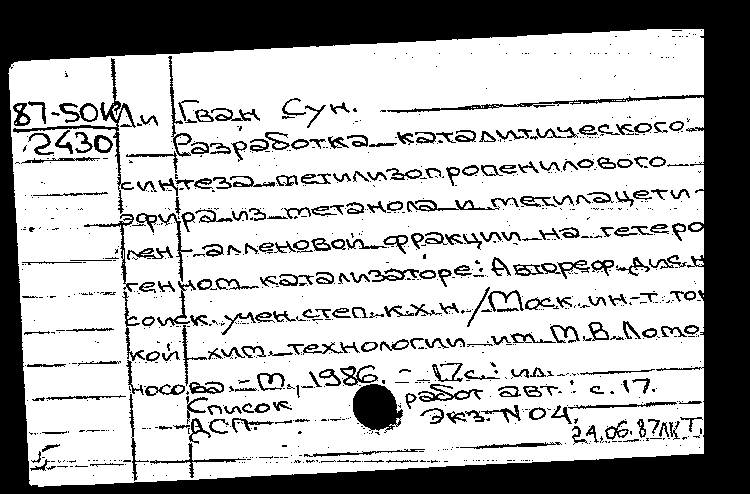 87-50К Ли Гван Сун.
2430 Разработка каталитического
синтеза метилизопропенилового
эфира из метанола и метилацети-
лен-алленовой фракции на гетеро
генном катализаторе: Автореф. дис. н
соиск. учен. степ. к.х.н. / Моск. ин-т тон
кой хим. технологии им. М.В. Ломо
носова. - М., 1986. - 17с.: ил.
Список работ авт.: с. 17.
ДСП. Экз. N 04.
24.06.87
5